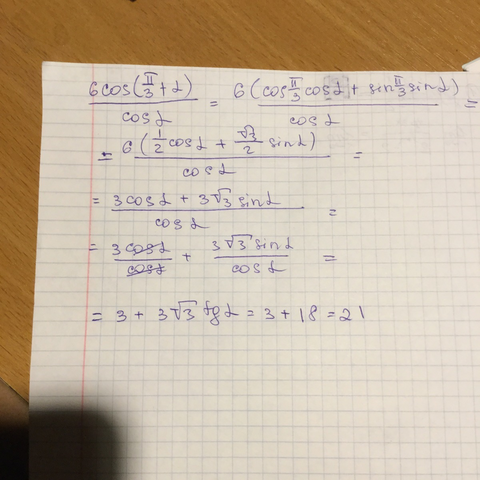 6cos(π/3 + α)/cosα = 6(cos π/3 cosα + sin π/3 sinα)/cosα =
= 6(1/2 cosα + √3/2 sinα)/cosα =
= 3cosα + 3√3 sinα/cosα =
= 3cosα/cosα + 3√3 sinα/cosα =
= 3 + 3√3 tgα = 3 + 18 = 21